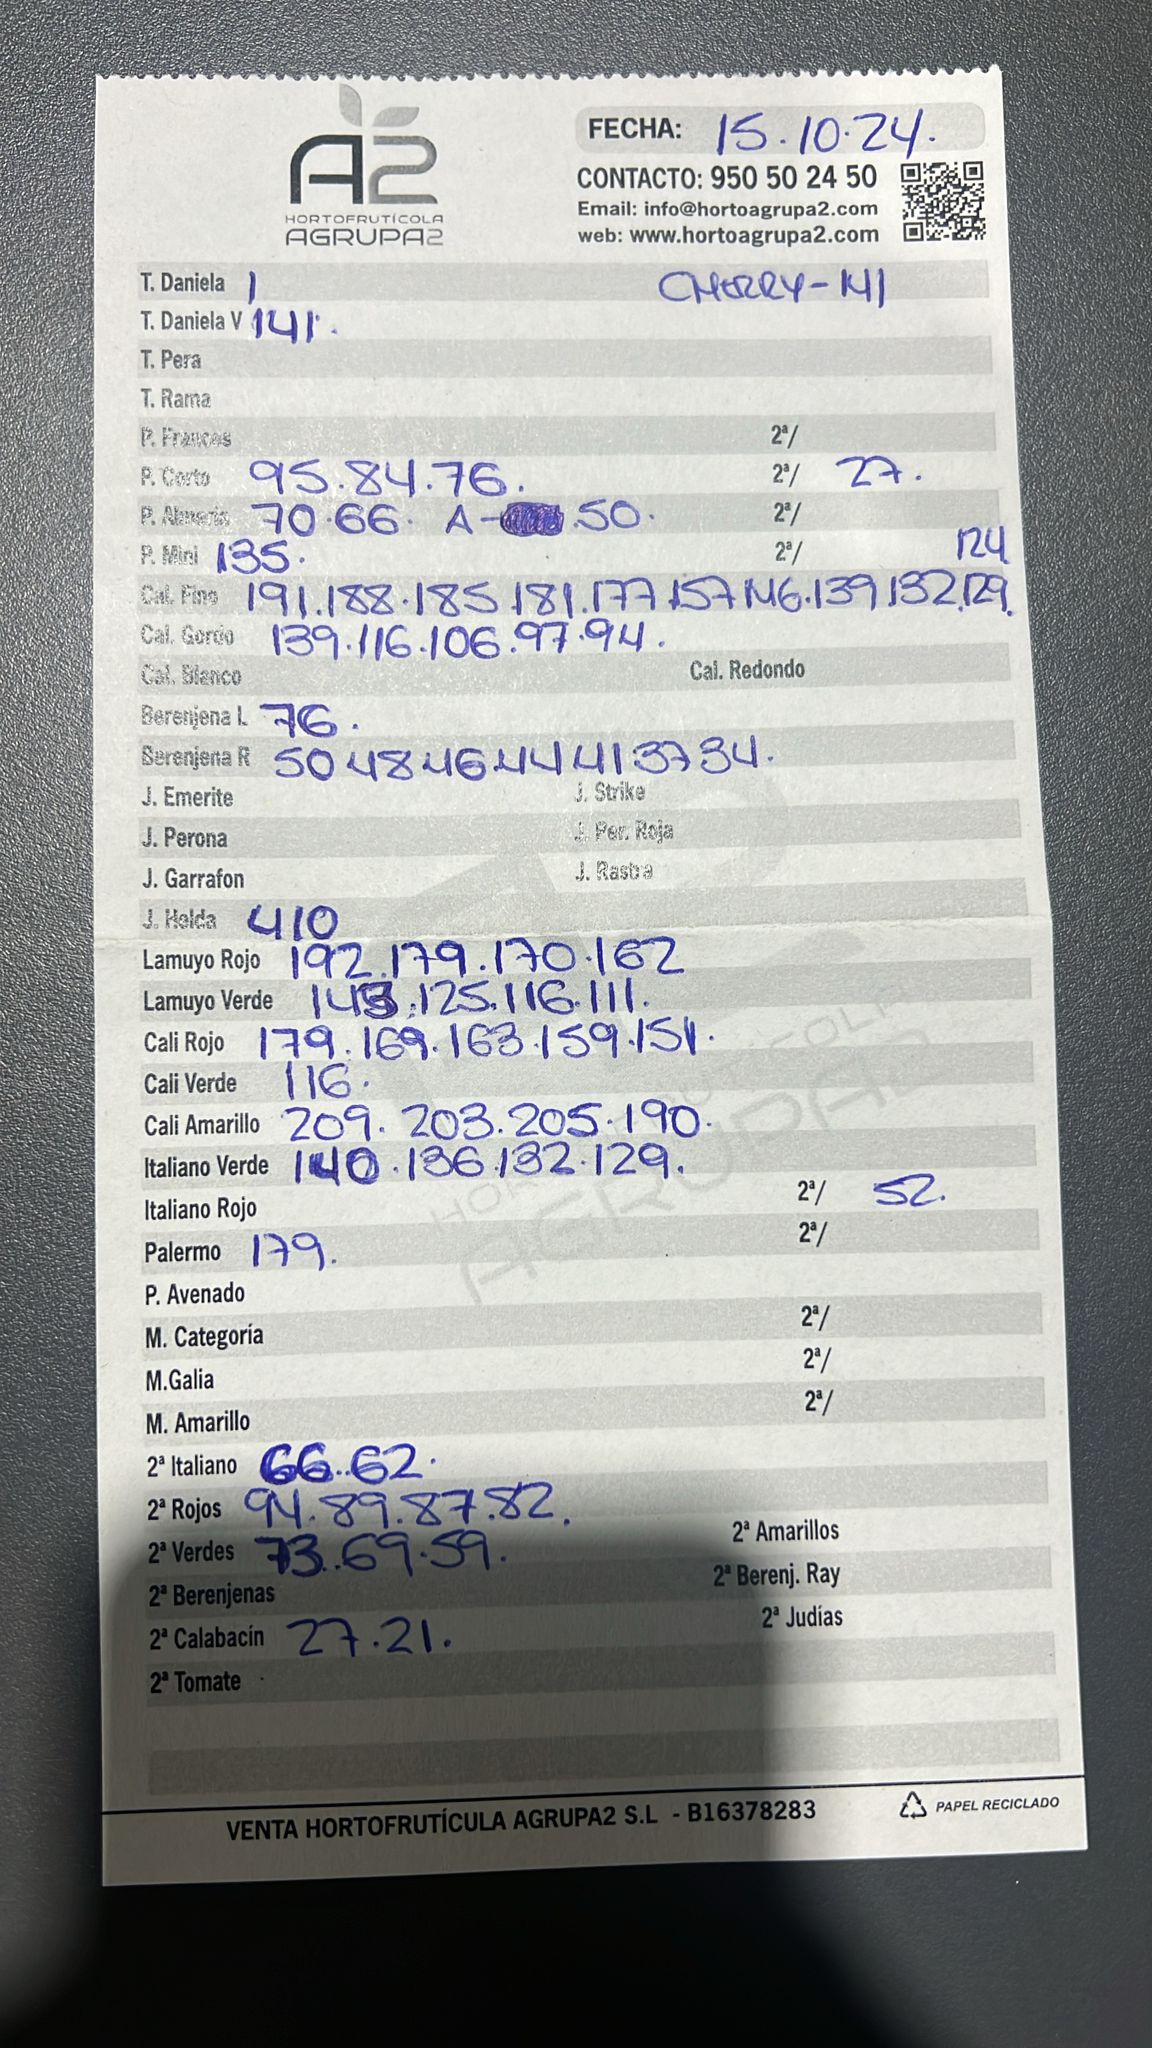 A2
HORTOFRUTÍCOLA
AGRUPA2
FECHA: 15.10.24.
CONTACTO: 950 50 24 50
Email: info@hortoagrupa2.com
web: www.hortoagrupa2.com
T. Daniela 1 CHERRY-141
T. Daniela V 141.
T. Pera
T. Rama
P. Frances 2ª/
P. Corto 95.84.76. 2ª/ 27.
P. Almeria 70.66. A- 50. 2ª/
P. Mini 135. 2ª/ 124
Cal. Fino 191.188.185.181.177.157.146.139.132.129.
Cal. Gordo 139.116.106.97.94.
Cal. Blanco Cal. Redondo
Berenjena L 76.
Berenjena R 50.48.46.44.41.37.34.
J. Emerite J. Strike
J. Perona J. Per. Roja
J. Garrafon J. Rastra
J. Helda 410
Lamuyo Rojo 192.179.170.162
Lamuyo Verde 143.125.116.111.
Cali Rojo 179.169.163.159.151.
Cali Verde 116.
Cali Amarillo 209.203.205.190.
Italiano Verde 140.136.132.129.
Italiano Rojo 2ª/ 52.
Palermo 179. 2ª/
P. Avenado
M. Categoría 2ª/
M.Galia 2ª/
M. Amarillo 2ª/
2ª Italiano 66.62.
2ª Rojos 94.89.87.82.
2ª Verdes 73.69.59. 2ª Amarillos
2ª Berenjenas 2ª Berenj. Ray
2ª Calabacín 27.21. 2ª Judías
2ª Tomate
VENTA HORTOFRUTÍCULA AGRUPA2 S.L - B16378283 PAPEL RECICLADO